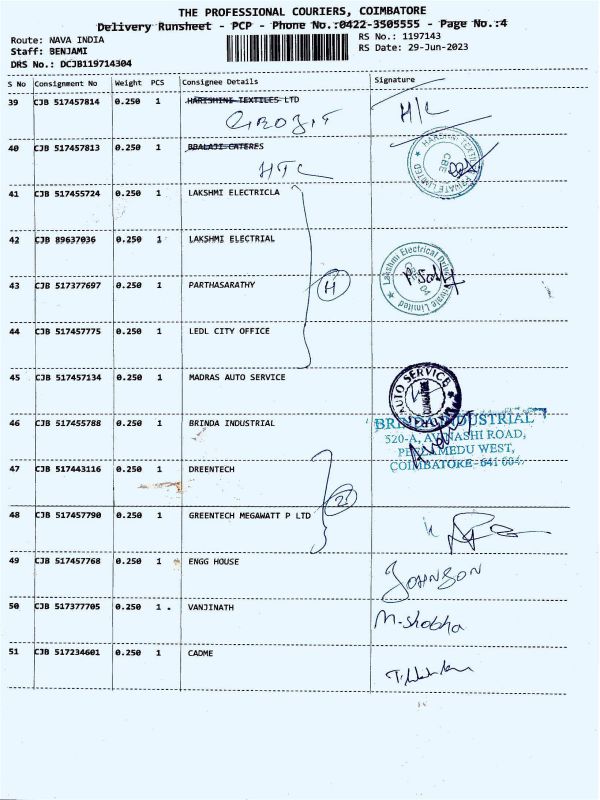 THE PROFESSIONAL COURIERS, COIMBATORE
Delivery Runsheet - PCP - Phone No.:0422-3505555 - Page No.:4
Route: NAVA INDIA RS No.: 1197143
Staff: BENJAMI RS Date: 29-Jun-2023
DRS No.: DCJB119714304
S No Consignment No Weight PCS Consignee Details Signature
39 CJB 517457814 0.250 1 HARISHINI TEXTILES LTD
H/L
40 CJB 517457813 0.250 1 BBALAJI CATERES
HTL
HARSHNI TEXTIL PRIVATE LIMITED
CBE
41 CJB 517455724 0.250 1 LAKSHMI ELECTRICLA
42 CJB 89637036 0.250 1 LAKSHMI ELECTRIAL
Lakshmi Electrical Drives Private Limited
43 CJB 517377697 0.250 1 PARTHASARATHY
H
44 CJB 517457775 0.250 1 LEDL CITY OFFICE
45 CJB 517457134 0.250 1 MADRAS AUTO SERVICE
AUTO SERVICE
COIMBATORE
46 CJB 517455788 0.250 1 BRINDA INDUSTRIAL
BRINDA INDUSTRIAL
520-A, AVINASHI ROAD,
PEELAMEDU WEST,
COIMBATORE-641 004.
47 CJB 517443116 0.250 1 DREENTECH
2
48 CJB 517457790 0.250 1 GREENTECH MEGAWATT P LTD
49 CJB 517457768 0.250 1 ENGG HOUSE
JOHNSON
50 CJB 517377705 0.250 1 . VANJINATH
M-shobha
51 CJB 517234601 0.250 1 CADME